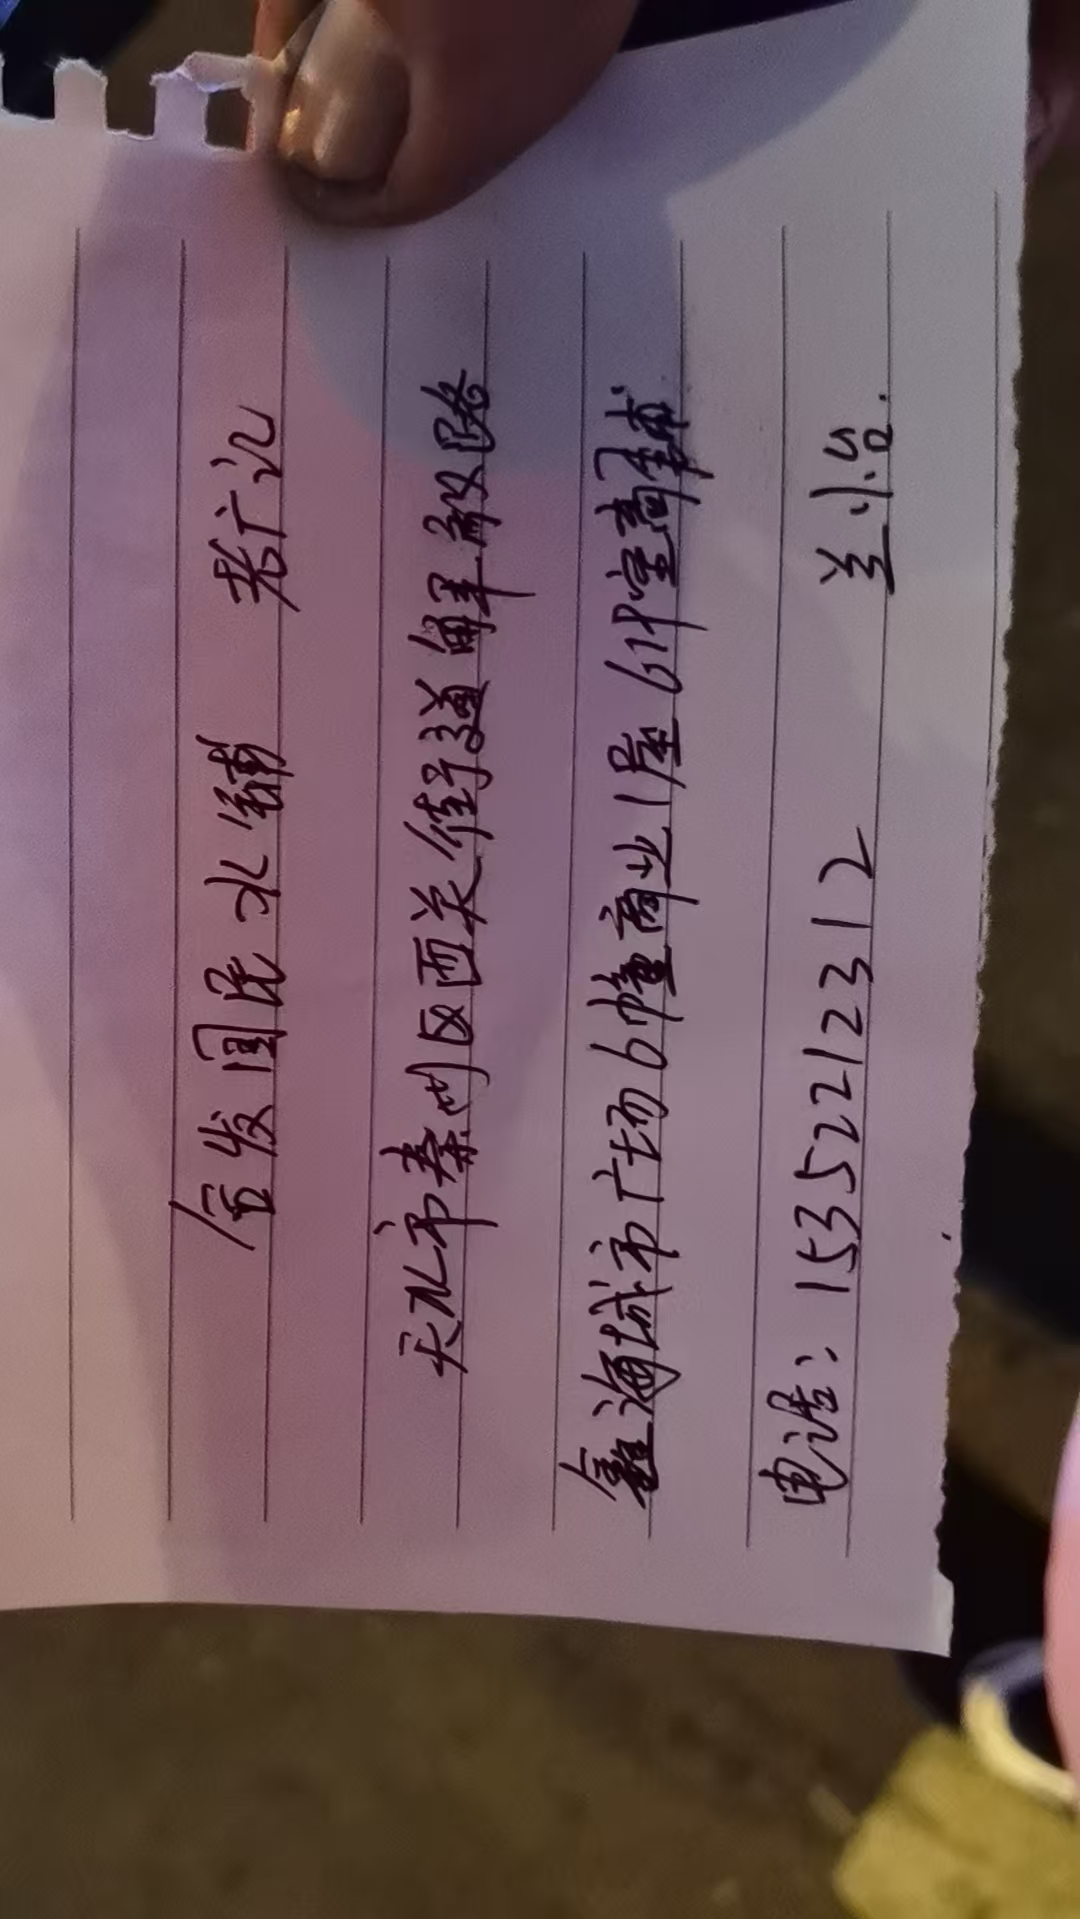 合发国民水铺 老广记
天水市秦州区西关街道解放路
鑫海城市广场6幢商业1座 室商铺
电话: 15352212312 兰小治.